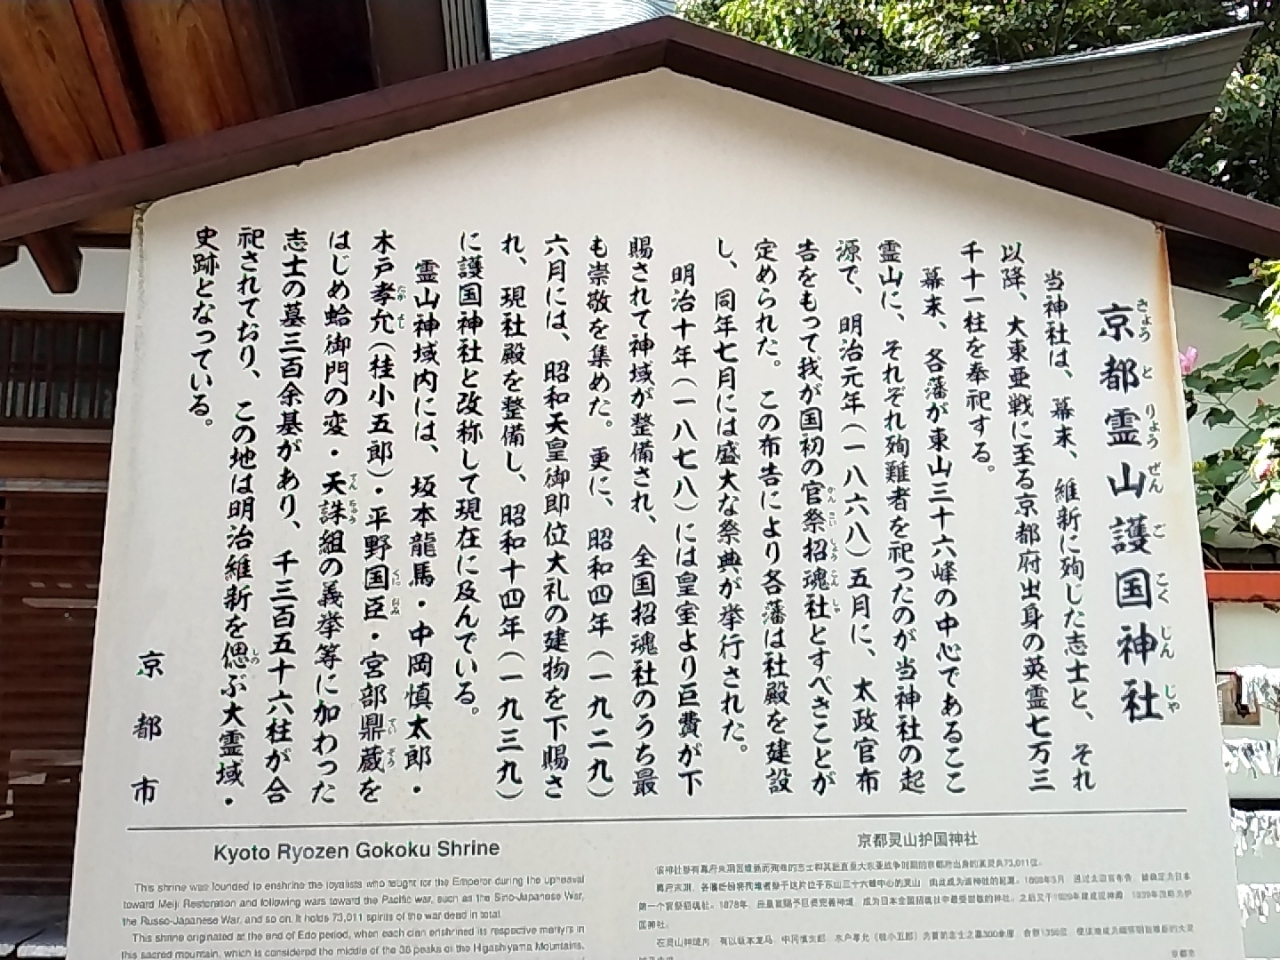 京都霊山護国神社
きょうとりょうぜんごこくじんじゃ
当神社は、幕末、維新に殉した志士と、それ
以降、大東亜戦に至る京都府出身の英霊七万三
千十一柱を奉祀する。
幕末、各藩が東山三十六峰の中心であるここ
霊山に、それぞれ殉難者を祀ったのが当神社の起
源で、明治元年(一八六八)五月に、太政官布
告をもって我が国初の官祭招魂社とすべきことが
かんさいしょうこんしゃ
定められた。この布告により各藩は社殿を建設
し、同年七月には盛大な祭典が挙行された。
明治十年(一八七八)には皇室より巨費が下
賜されて神域が整備され、全国招魂社のうち最
も崇敬を集めた。更に、昭和四年(一九二九)
六月には、昭和天皇御即位大礼の建物を下賜さ
れ、現社殿を整備し、昭和十四年(一九三九)
に護国神社と改称して現在に及んでいる。
霊山神域内には、坂本龍馬・中岡慎太郎・
木戸孝允(桂小五郎)・平野国臣・宮部鼎蔵を
たかよし
くにおみ
ていぞう
はじめ蛤御門の変・天誅組の義挙等に加わった
てんちゅう
志士の墓三百余基があり、千三百五十六柱が合
祀されており、この地は明治維新を偲ぶ大霊域・
しの
史跡となっている。
京都市
Kyoto Ryozen Gokoku Shrine
This shrine was founded to enshrine the loyalists who fought for the Emperor during the upheaval
toward Meiji Restoration and following wars toward the Pacific war, such as the Sino-Japanese War,
the Russo-Japanese War, and so on. It holds 73,011 spirits of the war dead in total.
This shrine originated at the end of Edo period, when each clan enshrined its respective martyrs in
this sacred mountain, which is considered the middle of the 36 peaks of the Higashiyama Mountains.
京都灵山护国神社